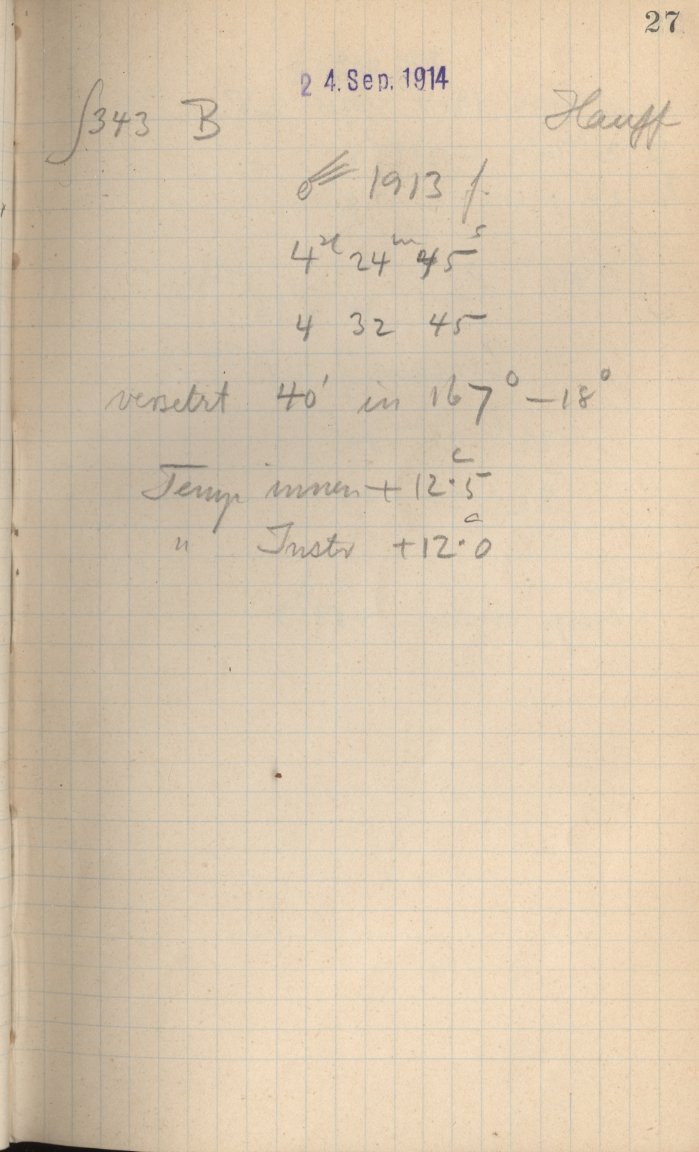 27
24. Sep. 1914
∫343 B Hauff
☄ 1913 f.
4ʰ 24ᵐ 45ˢ
4 32 45
versetzt 40' in 167° – 18°
Temp innen + 12.5
" Instr + 12.0